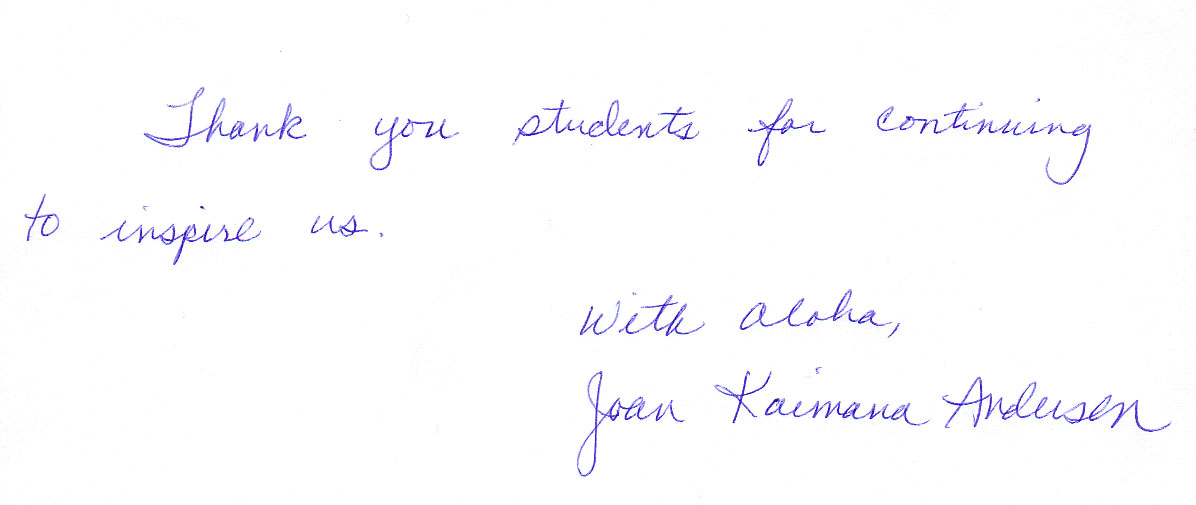 Thank you students for continuing
to inspire us.
With aloha,
Joan Kaimana Andersen